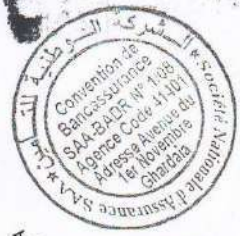 الشركة الوطنية للتأمين
Société Nationale d'Assurance SAA
Convention de
Bancassurance
SAA-BADR N° 1/08
Agence Code 41J01
Adresse Avenue du
1er Novembre
Ghardaia